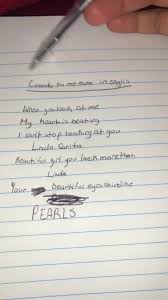 Cuando tu me miras in english
When you look at me
My heart is beating
I can't stop looking at you
Linda Carita
Beautiful girl you look more than
Linda
Your beautiful eyes shine like
PEARLS